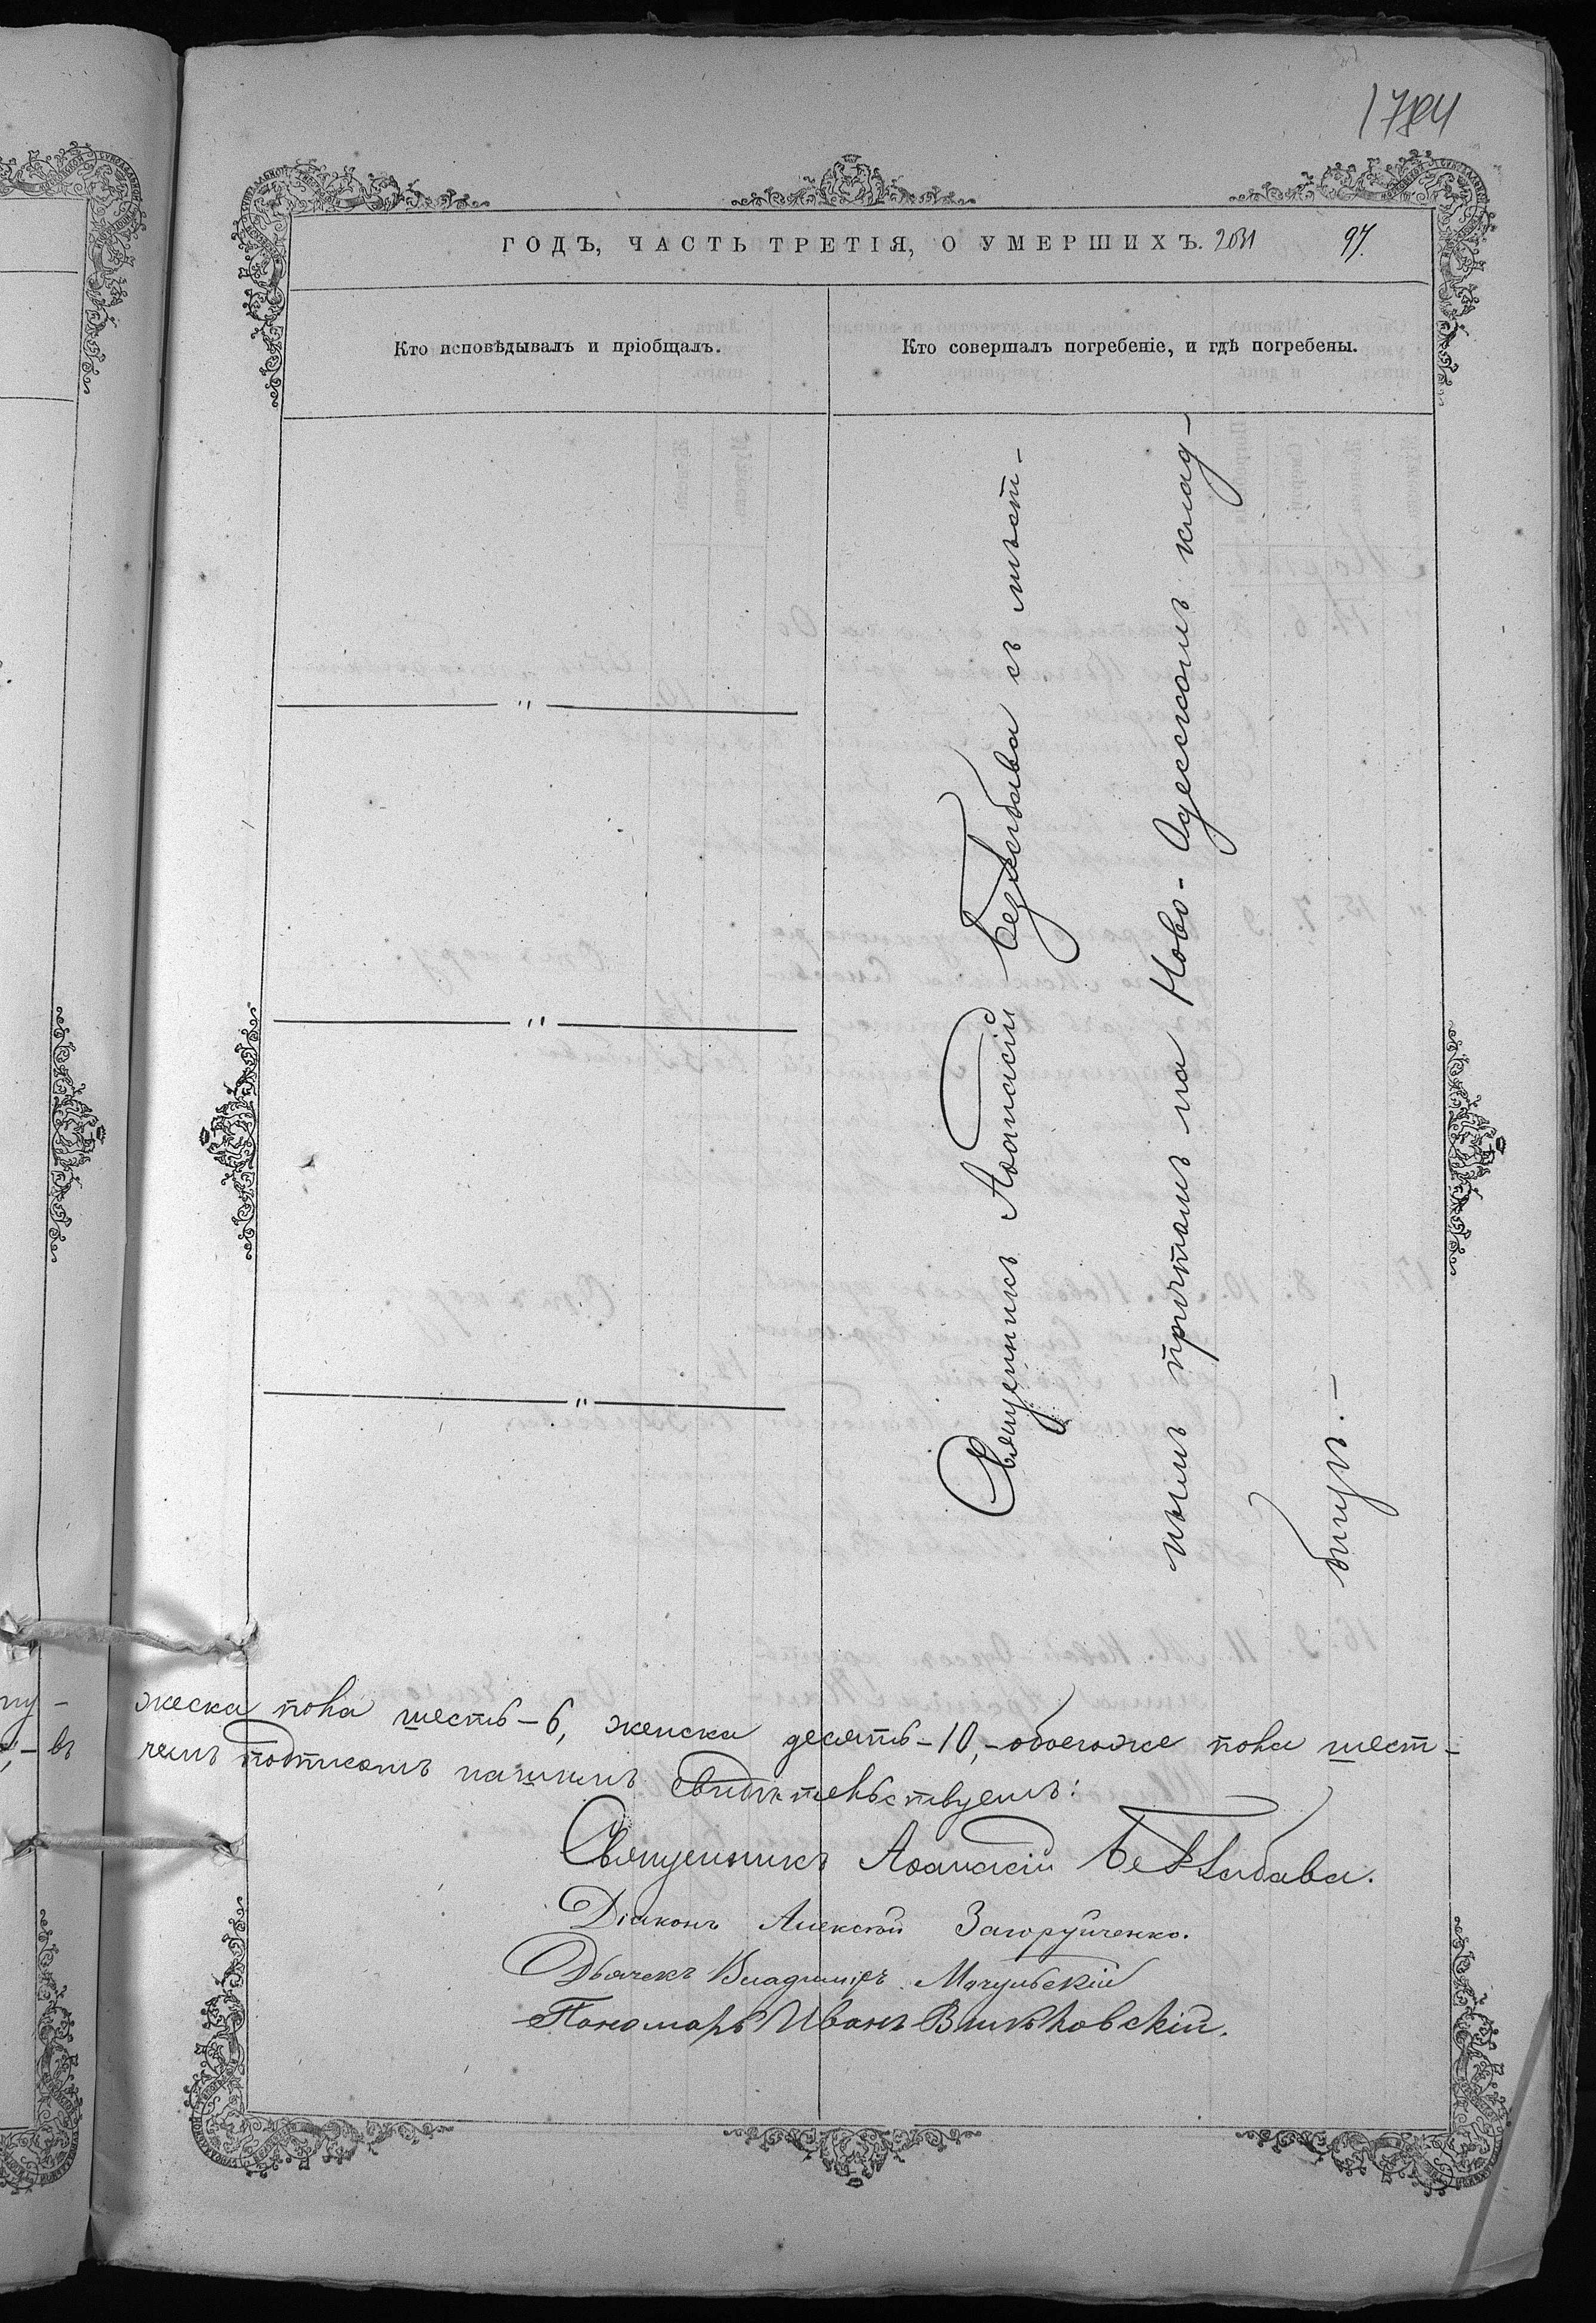 ГОДЪ, ЧАСТЬ ТРЕТІЯ, О УМЕРШИХЪ. 97.
Кто исповѣдывалъ и пріобщалъ.
Кто совершалъ погребеніе, и гдѣ погребены.
Священникъ Аѳанасій Беззабава съ мѣст-
нымъ причтомъ на Ново-Одесскомъ клад-
бищѣ.-
жеска пола шесть-6, женска десять-10,-обоегоже пола шест-
чемъ подписомъ нашимъ свидѣтельствуемъ:
Священникъ Аѳанасій Беззабава.
Діаконъ Алексѣй Загоруйченко.
Дьячекъ Владиміръ Мачульскій
Пономарь Иванъ